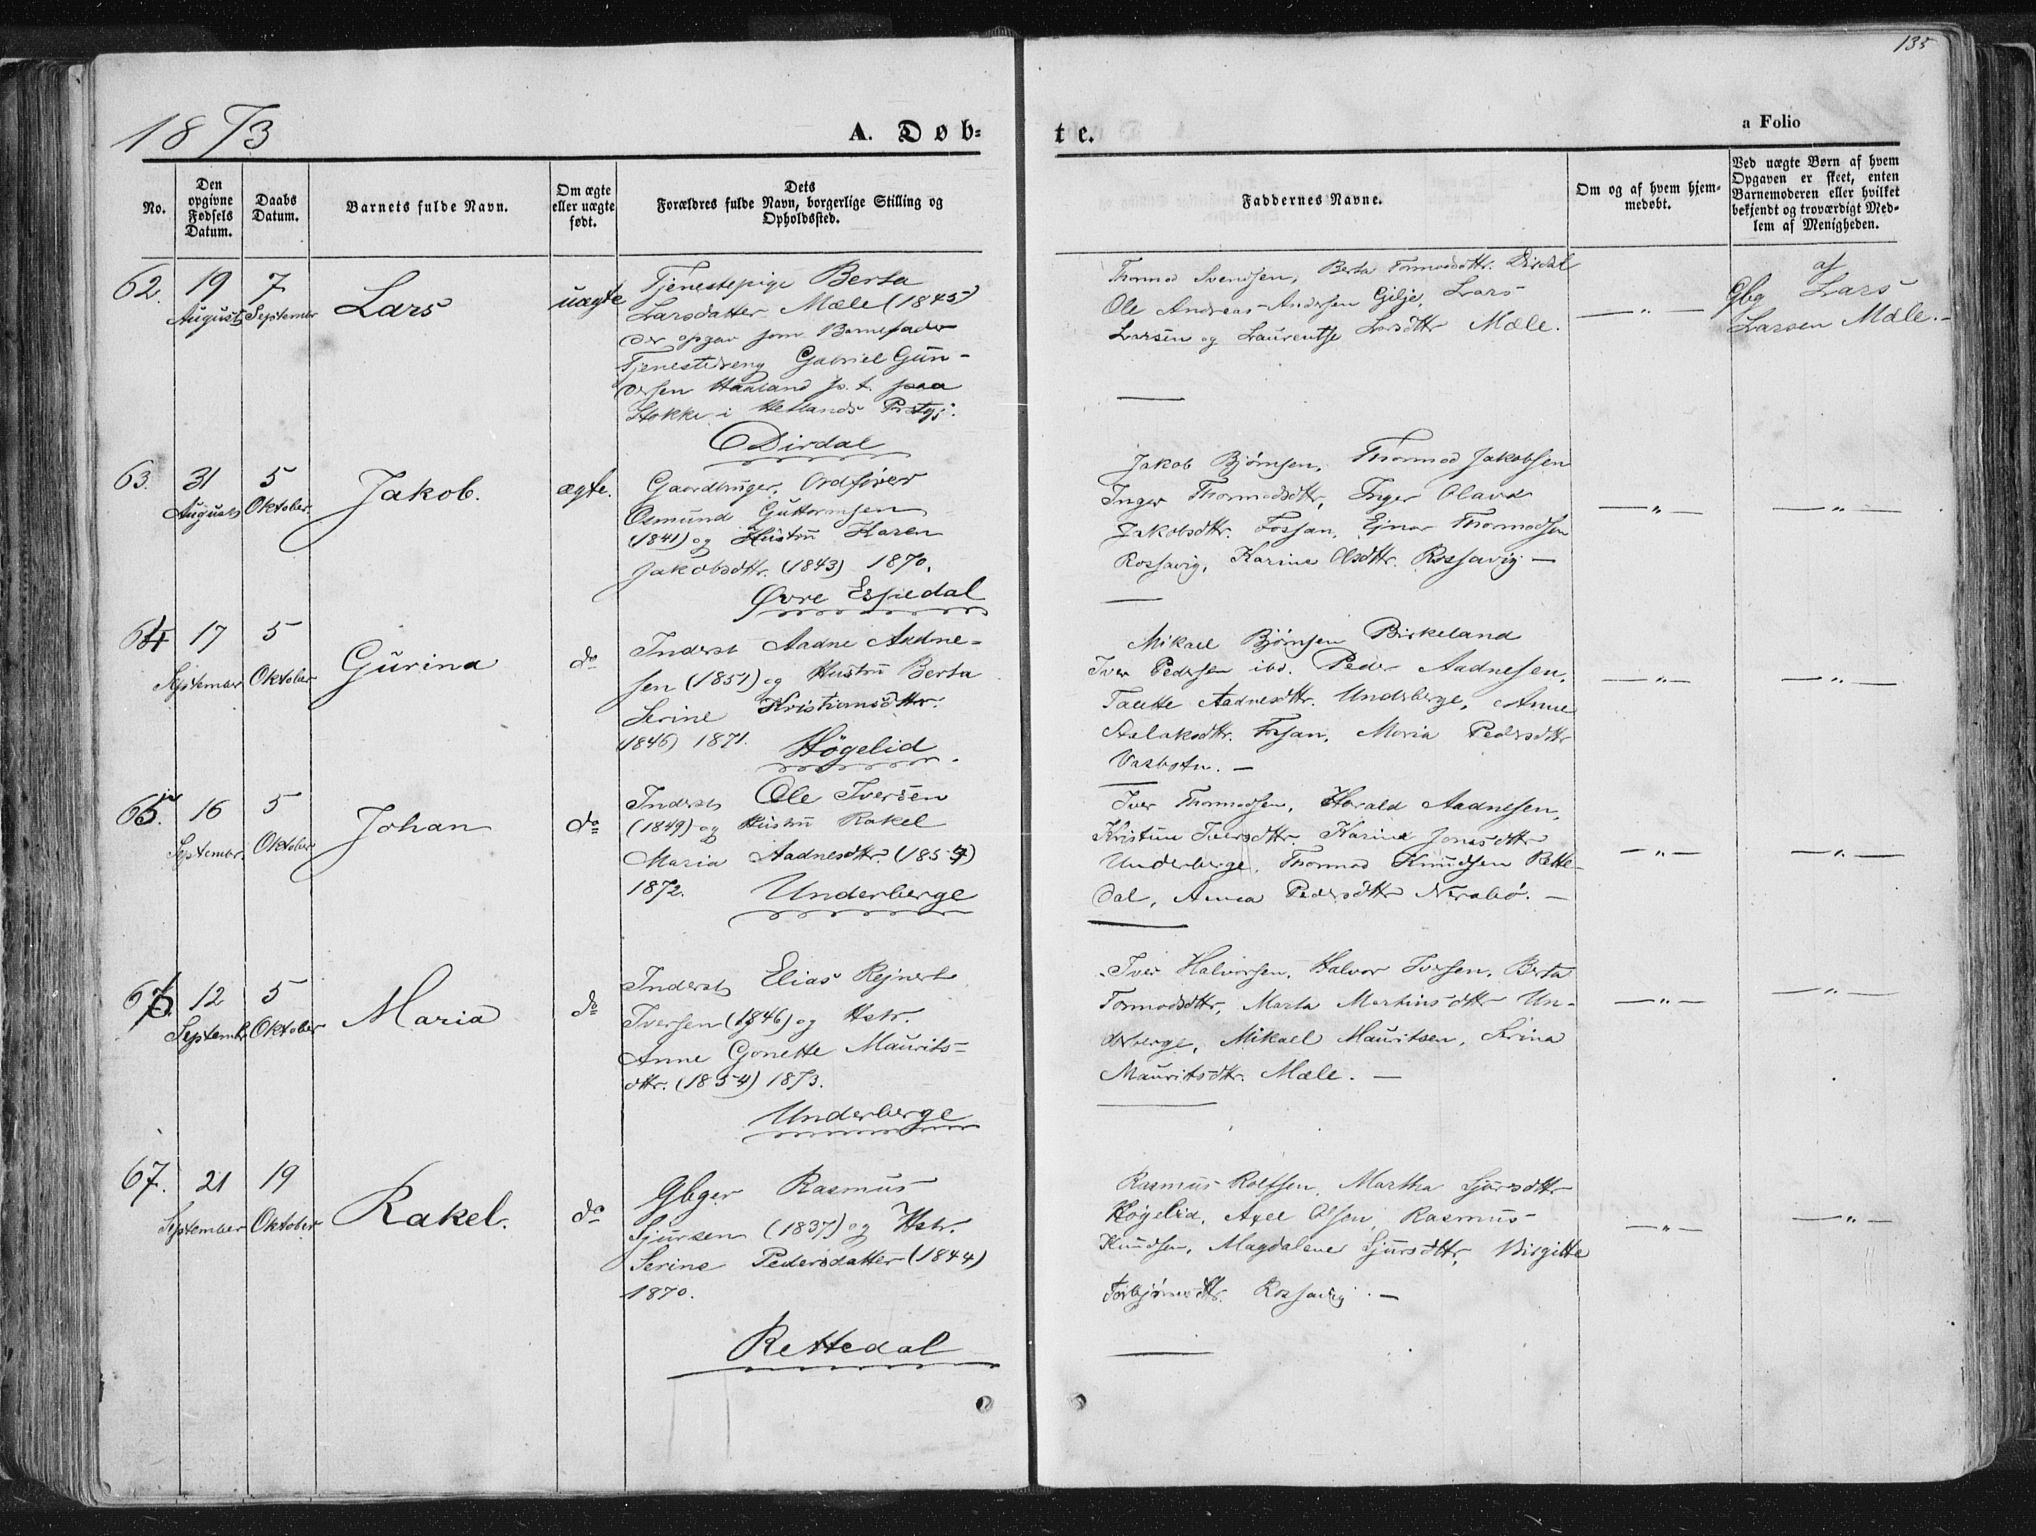 135
1873
A. Døb-
te.
a Folio
No.
Den opgivne Fødsels Datum.
Daabs Datum.
Barnets fulde Navn.
Om ægte eller uægte født.
Dets
Forældres fulde Navn, borgerlige Stilling og
Opholdssted.
Faddernes Navne.
Om og af hvem hjem-
medøbt.
Ved uægte Børn af hvem
Opgaven er skeet, enten
Barnemoderen eller hvilket
bekjendt og troværdigt Med-
lem af Menigheden.
62. 19 August 7 September Lars uægte
Tjenestepige Berta
Larsdatter Mæle (1845)
der opgav som Barnefader
Tjenestedreng Gabriel Gun-
dersen Haaland p. t. paa
Stokke i Hetlands Prstgj.
Dirdal
Thormod Svendsen, Berta Tormodsdttr. Dirdal
Ole Andreas Andersen Gilje, Lars
Larsen og Laurentse Larsdttr Mæle.
— " —
af
Gbg Lars
Larsen Mæle. -
63. 31 August 5 Oktober Jakob. ægte.
Gaardbruger, Ordfører
Osmund Guttormsen
(1841) og Hustru Karen
Jakobsdttr. (1843) 1870.
Øvre Espedal
Jakob Bjørnsen, Thormod Jakobsen
Inger Thormodsdttr, Inger Olava
Jakobsdttr. Fossan, Ejnar Thormodsen
Rossavig, Karine Olsdttr. Rossavig —
— " —
— " —
64 17 September 5 Oktober Gurina do
Inderst Aadne Aadne-
sen (1851) og Hustru Berta
Serine Kristiansdttr.
(1846) 1871. Høgelid
Mikael Bjørnsen Birkeland
Iver Pedersen ibd. Peder Aadnesen,
Taette Aadnesdttr. Underberge, Anne
Aslaksdttr. Fosan, Maria Pedersdttr
Vasbotn. —
— " —
— " —
65. 16 Septembr. 5 Oktober Johan do
Inderst Ole Iversen
(1849) og Hustru Rakel
Maria Aadnesdttr. (1854)
1872. Underberge
Iver Thormodsen, Harald Aadnesen,
Kristine Iversdttr. Karine Jonasdttr
Underberge, Thormod Knudsen Rette-
dal, Anna Pedersdttr Nerabø. —
— " —
— " —
66. 12 Septembr. 5 Oktober Maria do
Inderst Elias Rejnert
Iversen (1846) og Hstr.
Anne Gjonette Maurits-
dttr. (1854) 1873.
Underberge
Iver Halvorsen, Halvor Iversen, Berta
Tormodsdttr, Marta Martinsdttr Un-
derberge, Mikael Mauritsen, Serina
Mauritsdttr. Mæle. —
— " —
— " —
67. 21 September 19 Oktober Rakel. do
Gbger Rasmus
Sjursen (1837) og Hstr.
Serine Pedersdatter (1844)
1870.
Rettedal
Rasmus Rolfsen, Martha Sjursdttr
Høgelid, Axel Olsen, Rasmus
Knudsen, Magdalene Sjursdttr, Birgitte
Torbjørnsdttr. Rossavig. —
— " —
— " —